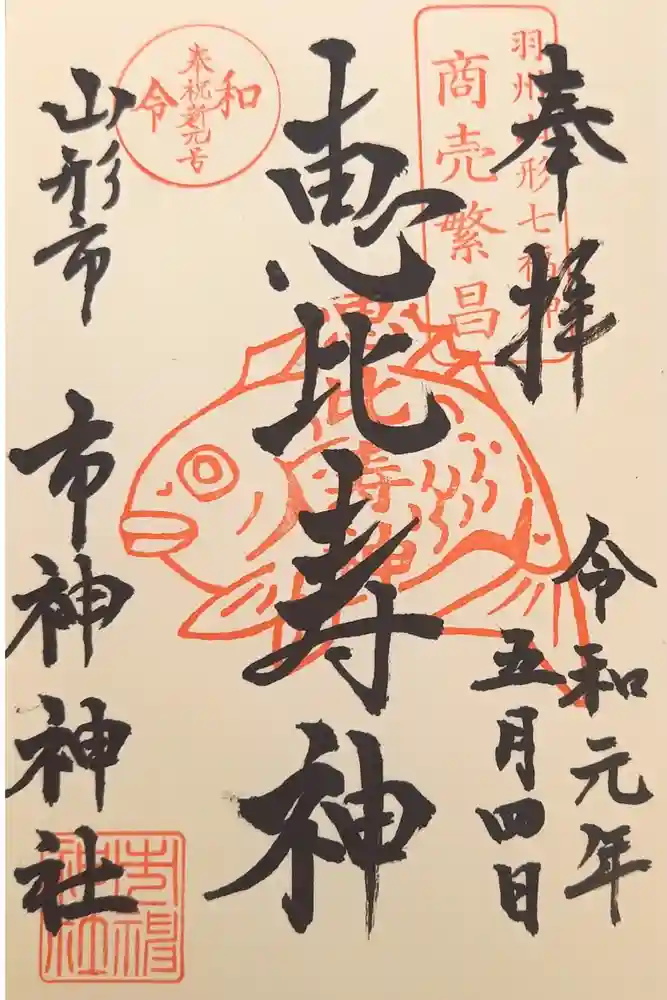 奉拝
羽州山形七福神
商売繁昌
令和元年
五月四日
恵比寿神
恵比寿神
奉祝新元号
令和
山形市
市神神社
市神神社